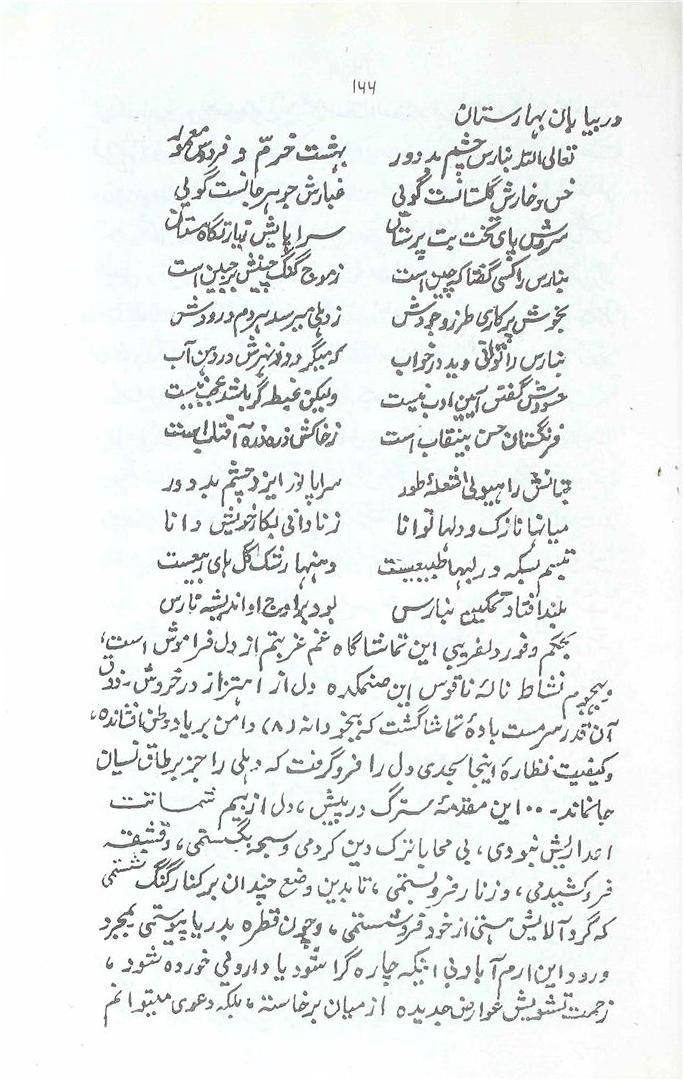 ۱۶۶
در بیابان بهارستان
تعالی الله بنارس چشم بد دور بهشت خرم و فردوس معمور
خس و خارش گلستانست گوئی غبارش جوهر جانست گوئی
سروش پای تخت بت پرستان سراپایش زیارتگاه مستان
بنارس را کسی گفتا که چین است ز موج گنگ چینش بر جبین است
بخوش پرکاری طرز وجودش ز دهلی میرسد هر دم درودش
بنارس را توئی دید در خواب که میگردد ز نهرش در دهن آب
حسودش گفتن آیین ادب نیست ولیکن غبطه گر باشد عجب نیست
فرنگستان حسن بینقاب است ز خاکش ذره ذره آفتاب است
بتانش را هیولی شعلهٔ طور سراپا نور ایزد چشم بد دور
میانها نازک و دلها توانا ز نادانی بکار خویش دانا
تبسم بسکه در لبها طبیعیست دهنها رشک گل های ربیعیست
بلند افتاده تمکین بنارس بود بر اوج او اندیشه نارس
بحکم وفور دلفریبی این تماشاگاه غم غربتم از دل فراموش است،
و بهجوم نشاط نالهٔ ناقوس این صنمکده دل از اهتزاز در خروش - ذوق
آن قدر سرمست بادهٔ تماشا گشت که بیخودانه (۸) دامن بر یاد وطن افشانده،
و کیفیت نظارهٔ اینجا بحدی دل را فرو گرفت که دهلی را جز بر طاق نسیان
جا نماند - ۰۰ این مقدمهٔ سترگ در پیش، دل از بیم شماتت
اعدا ریش نبودی، بی محابا ترک دین کردمی و سبحه بگسستمی، و قشقه
فرو کشیدمی، و زنار فرو بستمی، تا بدین وضع چندان بر کنار گنگ نشستمی
که گرد آلایش هستی از خود فرو شستمی، و چون قطره بدریا پیوستمی بمجرد
ورود این ارم آباد بی اینکه چاره گرا شود یا داروئی خورده شود،
زحمت تشویش عوارض جدیده از میان برخاسته، بلکه دعوی میتوانم